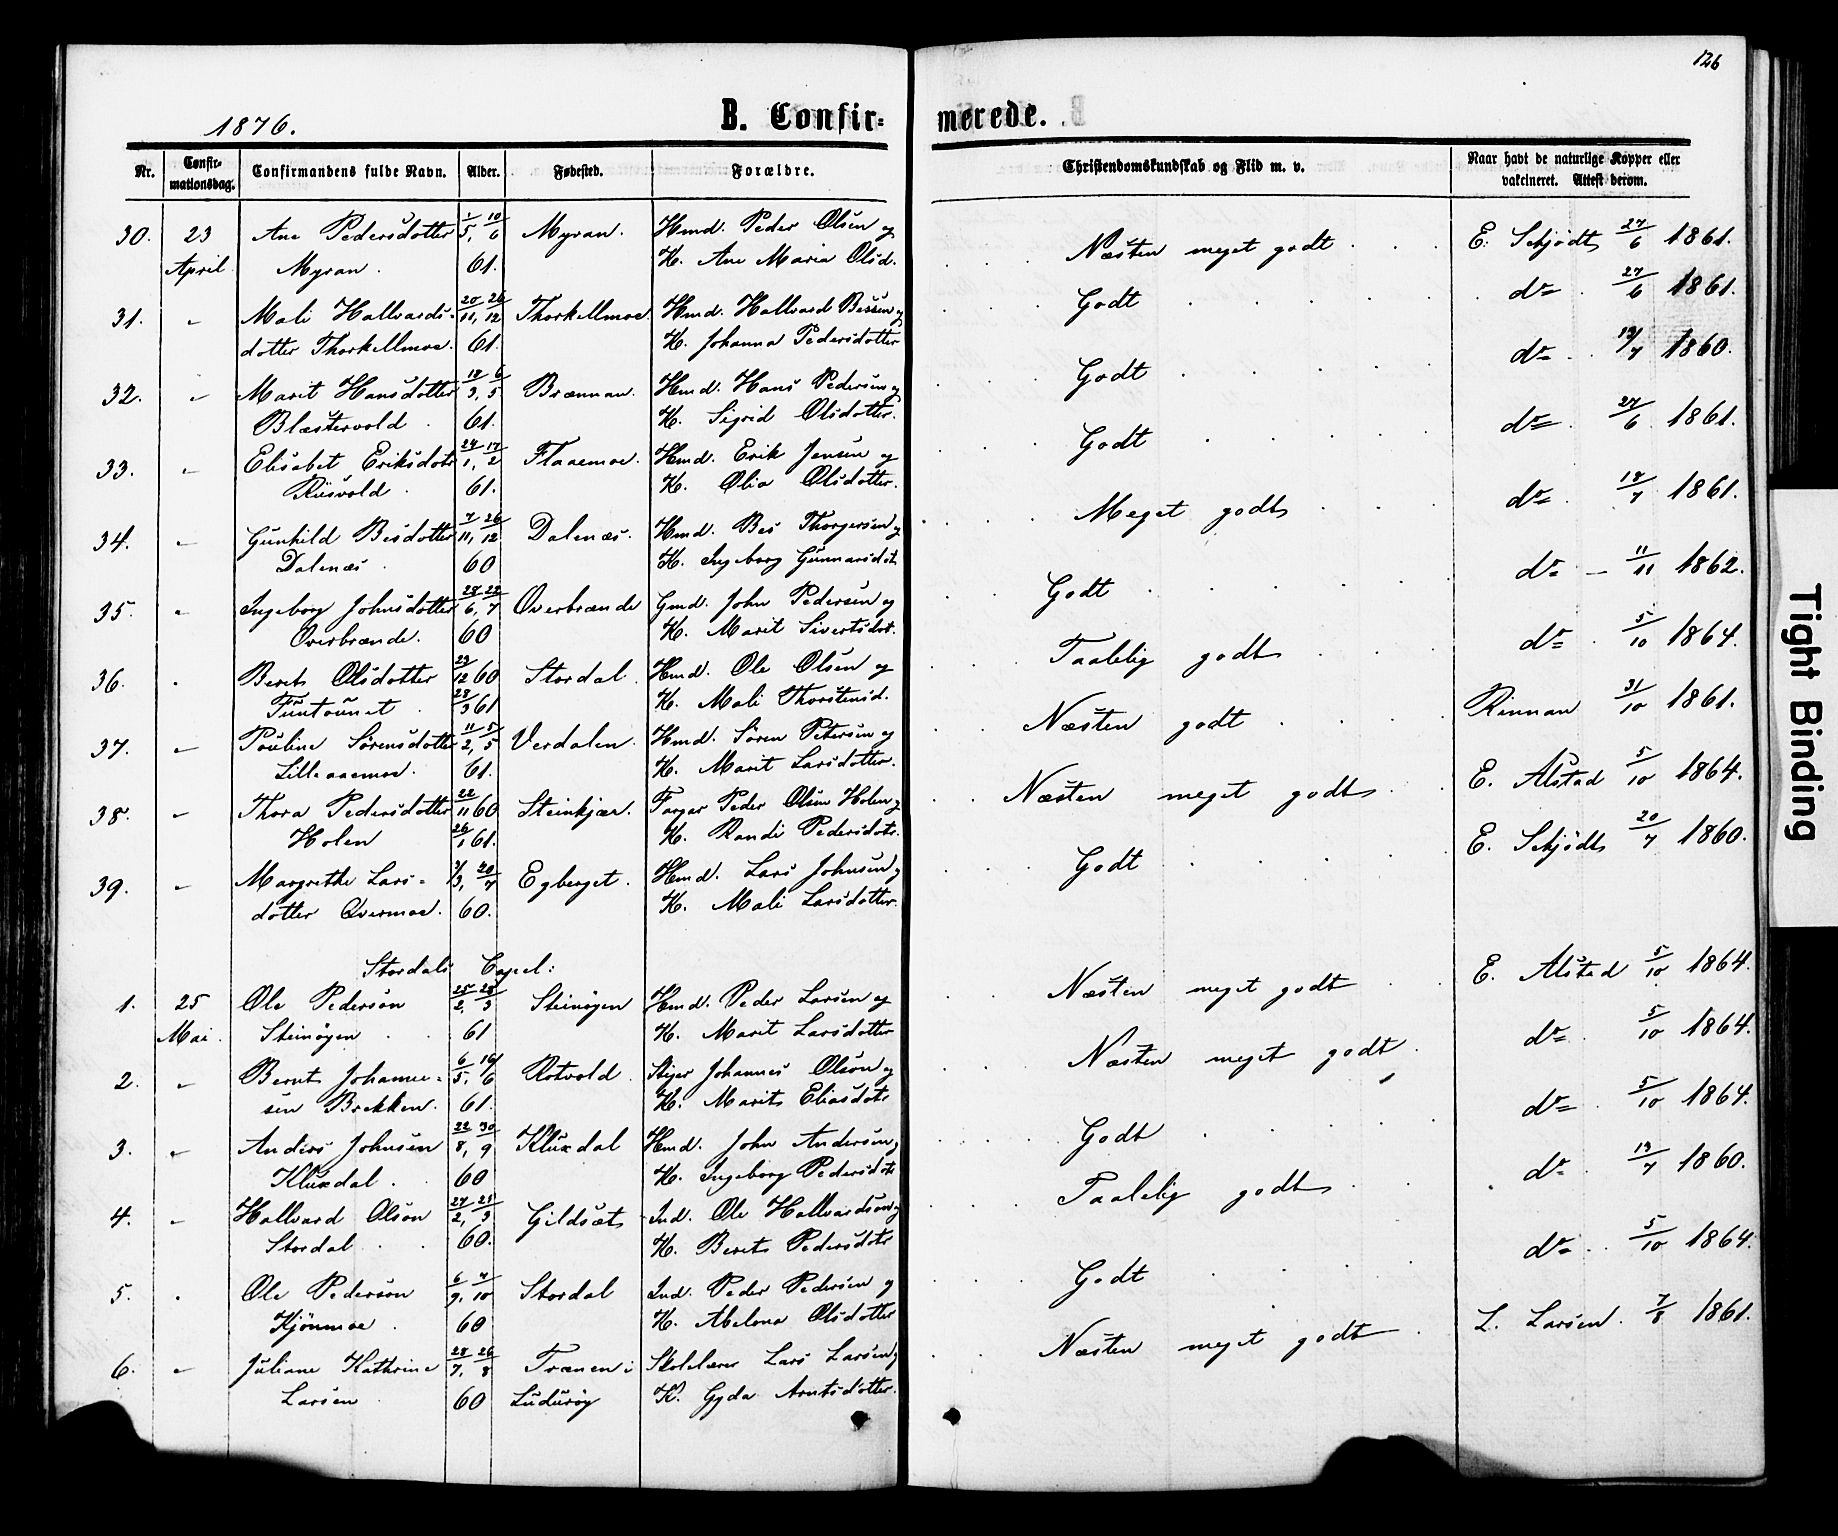 126
1876.
B. Confirmerede.
Nr. Confirmationsdag. Confirmandens fulde Navn. Alder. Fødested. Forældre. Christendomskundskab og Flid m. v. Naar havt de naturlige Kopper eller vakcineret. Attest derom.
30. 23 Ane Pedersdotter 1/5, 10/6 Myran. Hmd. Peder Olsen og Næsten meget godt E. Schjödt 27/6 1861.
April Myran. 61. K. Ane Maria Olsd.
31. " Mali Hallvards- 20/11, 26/12 Thorkellmoe. Hmd. Hallvard Bessen og Godt do 27/6 1861.
dotter Thorkellmoe. 61. K. Johanna Pedersdotter
32. " Marit Hansdotter 12/3, 6/5 Brennan. Hmd. Hans Pedersen og Godt do 19/7 1860.
Blæstervold 61. K. Sigrid Olsdotter.
33. " Elisabet Eriksdotr 24/1, 17/2 Flaaemoe. Hmd. Erik Jensen og Godt do 27/6 1861.
Riisvold 61. K. Olia Olsdotter.
34. " Gunhild Besdotter 7/11, 26/12 Dalenæs. Hmd. Bes Thorgersen og Meget godt do 18/7 1861.
Dalenæs 60 K. Ingeborg Gunnarsdot
35. " Ingeborg Johnsdotter 28/6, 22/7 Overbrænde Gmd. John Pedersen og Godt do 11/11 1862.
Overbrænde. 60 K. Marit Sivertsdot.
36. " Berit Olsdotter 29/12 60 Stordal. Hmd. Ole Olsen og Taalelig godt do 5/10 1864.
Funtaunet 28/3 61 K. Mali Thorstensd.
37. " Pauline Sörensdotter 11/2, 5/5 Verdalen. Hmd. Sören Petersen og Næsten godt Rinnan 31/10 1861.
Lilleaaemoe. 61. K. Marit Larsdotter.
38. " Thora Pedersdotter 22/11 60 Steinkjær. Farger Peder Olsen Holen og Næsten meget godt E. Alstad 5/10 1864.
Holen 26/1 61. K. Randi Pedersdotr.
39. " Margrethe Lars- 2/3, 20/7 Egberget. Hmd. Lars Johnsen og Godt E. Schjödt 20/7 1860.
dotter Overmoe. 60. K. Mali Larsdotter.
Stordals Capel:
1. 25 Ole Pederson 25/2, 28/3 Steinögen Hmd. Peder Larsen og Næsten meget godt E. Alstad 5/10 1864.
Mai. Steinögen 61 K. Marit Larsdotter
2. " Bernt Johanne- 6/5, 16/6 Rotvold. Stiger Johannes Olson og Næsten meget godt. do 5/10 1864.
sen Brekken. 61. K. Marit Eliasdotr
3. " Anders Johnsen 22/8, 30/9 Kluxdal Hmd. John Andersen og Godt do 5/10 1864.
Kluxdal. 60 K. Ingeborg Pedersdotr
4. " Hallvard Olson 27/2, 25/3 Gildsæt Ind. Ole Hallvardson og Taalelig godt do 19/7 1860.
Stordal 60. K. Berit Pedersdotr
5. " Ole Pederson 6/9, 7/10 Stordal Ind. Peder Pedersen og Godt do 5/10 1864.
Kjönmoe 60 K. Abelona Olsdotter
6. " Juliane Kathrine 28/7, 26/8 Trænen i Skolelærer Lars Larsen og Næsten meget godt L. Larsen. 7/8 1861.
Larsen 60 K. Gyda Arntsdotter.
Tight Binding